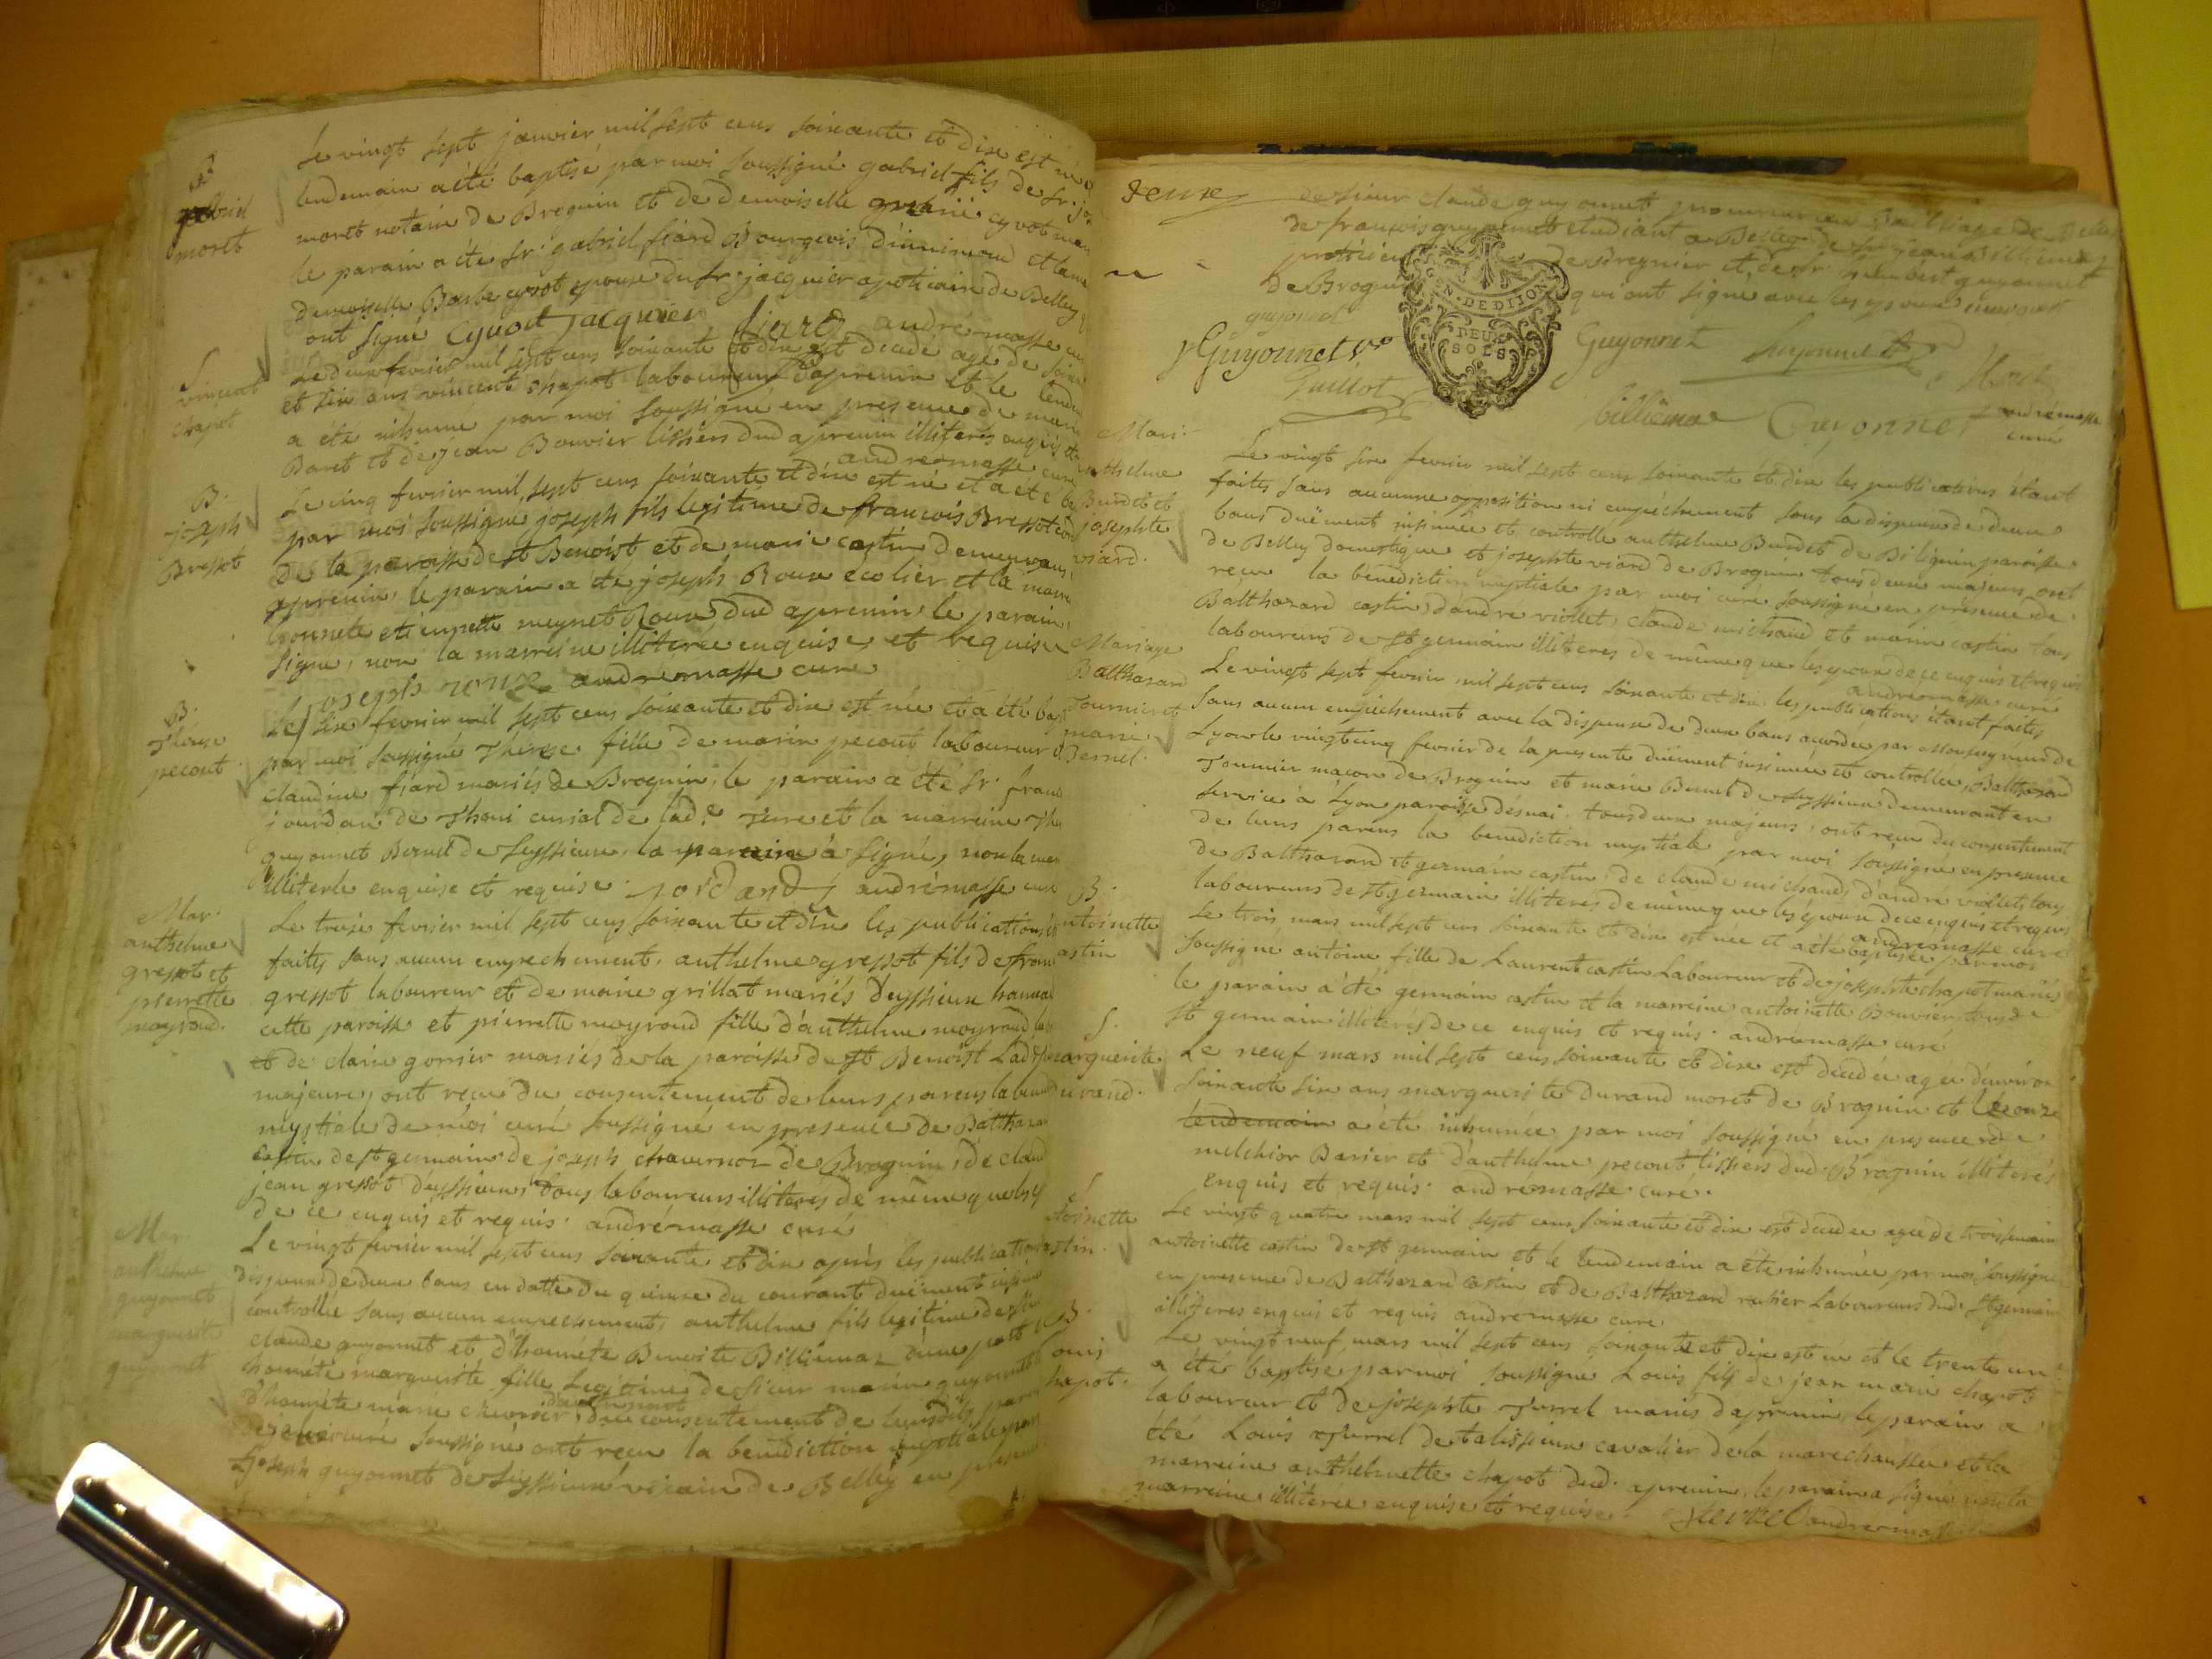 B.
gabriel
moret
Le vingt sept janvier mil sept cens soixante et dix est né
lendemain a été baptisé par moi soussigné gabriel fils de Sr. jo
moret notaire de Brognin et de demoiselle cyvot mar
le parain a été Sr. gabriel fiard Bourgeois et la mar
demoiselle Barbe cyvot epouse du Sr. jacquier apoticaire de Belley
ont signé Cyvot Jacquier fiard andré masse cu
S
vincent
chapot
Le deux fevrier mil sept cens soixante et dix est decedé agé de soixa
et six ans vincent chapot laboureur d'aprenin et le lende
a été inhumé par moi soussigné en presence de
Baret et de jean Bouvier lissiers dud aprenin illiterés enquis et
andré masse curé
B.
joseph
Bressot
Le cinq fevrier mil sept cens soixante et dix est né et a eté b
par moi soussigné joseph fils legitime de francois Bressot
de la paroisse de st Benoist et de marie castin demeurans
aprenin, le parain a été joseph Roux écolier et la marr
honnete etiennette meynet Roux dud aprenin, le parain
signé, non la marreine illiterée enquise et requise
Joseph roux andré masse curé
B.
Thérese
pecout
Le six fevrier mil sept cens soixante et dix est née et a été bap
par moi soussigné Thérese fille de marin pecout laboureur
claudine fiard mariés de Brognin, le parain a été Sr. franc
jourdan de Thoui curial de lade. Terre et la marreine Thé
guyonnet Bernel de Seyssieux, le parain a signé, non la mar
illiterée enquise et requise. jordan andré masse curé
Mar.
anthelme
gressot et
pierrette
moyroud.
Le treize fevrier mil sept cens soixante et dix les publications
faites sans aucun empechement. anthelme gressot fils de fran
gressot laboureur et de marie grillat mariés
cette paroisse et pierrette moyroud fille d'anthelme moyroud
et de claire gonier mariés de la paroisse de st Benoist
majeurs, ont reçu du consentement de leurs parens la bened
nuptiale de moi curé soussigné en presence de Balthazar
castin de st germain de joseph chavernoz de Brognin, de claud
jean gressot tous laboureurs illiteres de même que les
de ce enquis et requis. andré masse curé
Mar.
anthelme
guyonnet
marguerite
guyonnet
Le vingt fevrier mil sept cens soixante et dix après les publications
dispense de deux bans en datte du quinze du courant duëment insinuée
controllée sans aucun empechement, anthelme fils legitime de
claude guyonnet et d'honnéte Benoite Billiemaz d'une part
honnéte marguerite fille legitime de sieur marin guyonnet
d'honnéte marie du consentement de leursdits parens
curé soussigné ont reçu la benediction nuptiale par
joseph guyonnet de Seyssieux vicaire de Belley en presence
de sieur claude guyonnet procureur au Bailliage de Belley
de francois guyonnet etudiant a Belley de Sr. jean Billiemaz
praticien de Peyrieu et de Sr. guyonnet
de Brognin qui ont signé avec les epoux
GN. DE DIJON
DEUX
SOLS
guyonnet
Guyonnet Vre
Guillot
Guyonnet
Guyonnet
Billiemaz
Guyonnet
andré masse
curé
Mari.
anthelme
Burdet et
josephte
viard.
Le vingt six fevrier mil sept cens soixante et dix les publications étant
faites sans aucunne opposition ni empéchement sous la dispense de deux
bans duëment insinuée et controllée anthelme Burdet de Bilignin paroisse
de Belley domestique et josephte viard de Brognin tous deux majeurs, ont
reçu la bénédiction nuptiale par moi curé soussigné en présence de
Balthazard castin, d'andré viollet, claude michaud et marin castin tous
laboureurs de st germain illiteres de même que les epoux de ce enquis et requis
andré masse curé
Mariage
Balthazard
Tournier et
marie
Bernel.
Le vingt sept fevrier mil sept cens soixante et dix les publications étant faites
sans aucun empéchement avec la dispense de deux bans accordée par Monseigneur de
Lyon le vingt cinq fevrier de la presente duëment insinuée et controllée, Balthazard
Tournier maçon de Brognin et marie Bernel de Seyssieux demeurant en
service à Lyon paroisse d'esnai. tous deux majeurs, ont reçu du consentement
de leurs parens la benediction nuptiale par moi soussigné en presence
de Balthazard et germain castin, de claude michaud, d'andré viollet, tous
laboureurs de st germain illiteres de même que les epoux de ce enquis et requis
andré masse curé
B.
antoinette
castin
Le trois mars mil sept cens soixante et dix est née et a été baptisée par moi
soussigné antoine fille de Laurent castin Laboureur et de josephte chapot mariés
le parain a été germain castin et la marreine antoinette Bouvier tous de
st germain illiterés de ce enquis et requis. andré masse curé
S.
marguerite
durand.
Le neuf mars mil sept cens soixante et dix est décédée agée d'environ
soixante six ans marguerite durand moret de Brognin et le onze
lendemain a été inhumée par moi soussigné en presence de
melchior Barier et d'anthelme pecout lissiers dud. Brognin illiterés
enquis et requis. andré masse curé.
S
antoinette
castin.
Le vingt quatre mars mil sept cens soixante et dix est decedée agée de trois semaines
antoinette castin de st germain et le lendemain a été inhumée par moi soussigné
en presence de Balthazard castin et de Balthazard rubier Laboureurs dud. St germain
illiteres enquis et requis andré masse curé
B.
Louis
chapot.
Le vingt neuf mars mil sept cens soixante et dix est né et le trente un
a été baptisé par moi soussigné Louis fils de jean marie chapot
laboureur et de josephte Turrel mariés d'aprenin, le parain a
été Louis Turrel de talissieux cavalier de la marechaussée et la
marreine anthelmette chapot dud. aprenin, le parain a signé non la
marreine illiterée enquise et requise. andré masse